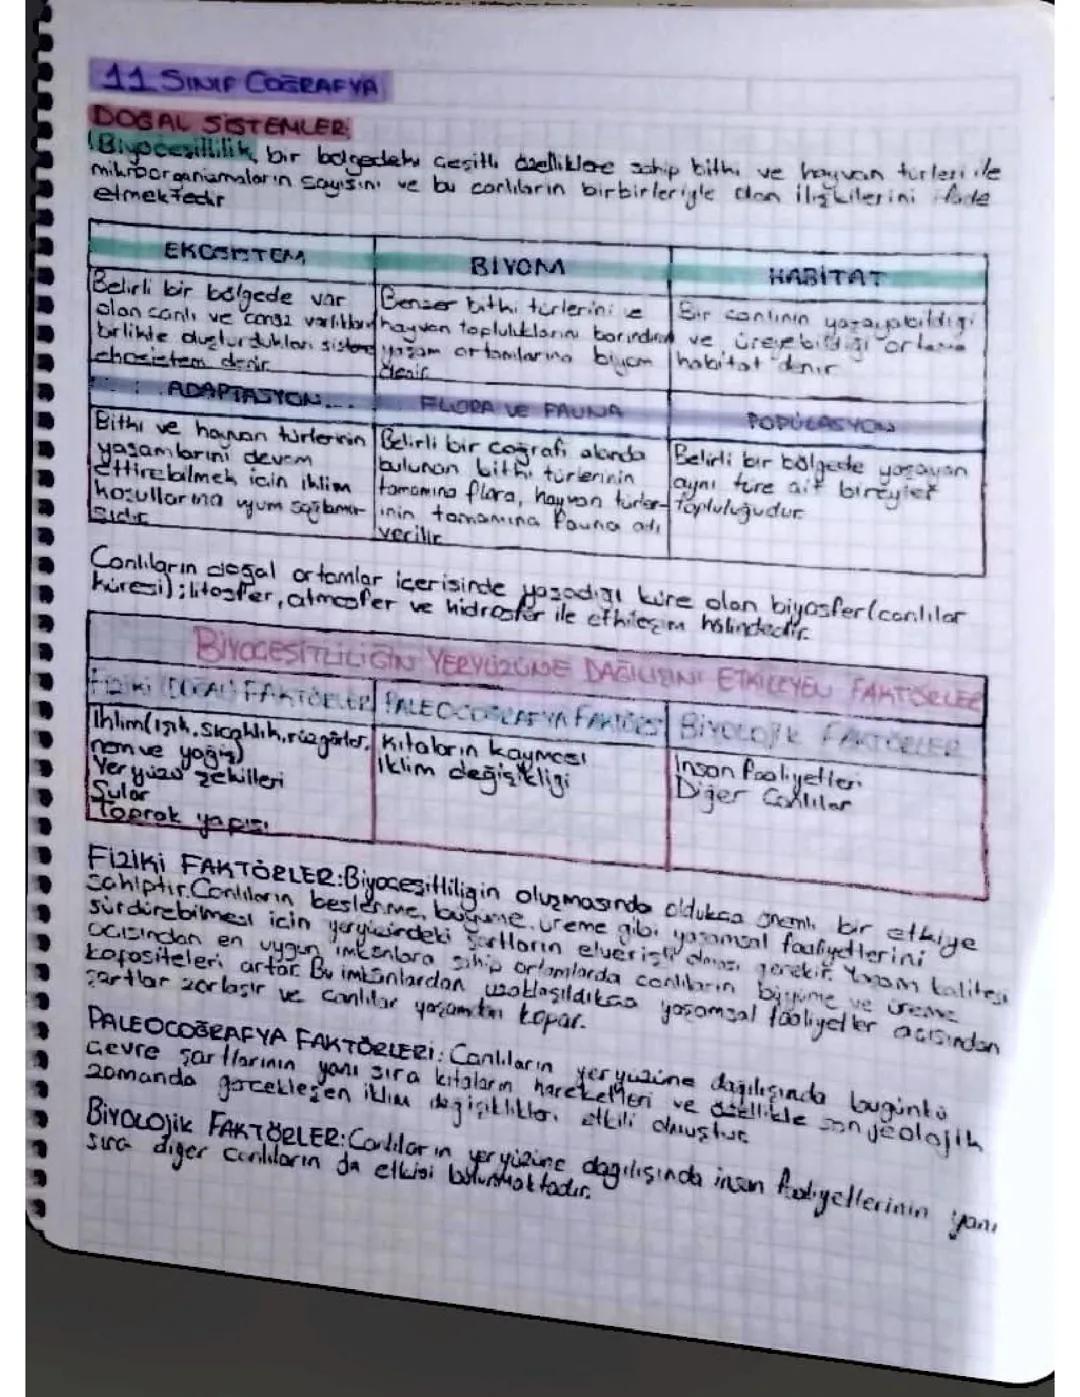 11 SINIF COĞRAFYA
DOĞAL SİSTEMLER:
Biyoçeşitlilik, bir bölgedeki çeşitli özelliklere sahip bitki ve hayvan türleri ile
mikroorganizmaların sayısını ve bu canlıların birbirleriyle olan ilişkilerini ifade
etmektedir
EKOSİSTEM
BİYOM
HABİTAT
Belirli bir bölgede var
olan canlı ve cansız varlıkların
birlikte oluşturdukları sisteme
ekosistem denir
Benzer bitki türlerini ve
hayvan topluluklarını barındıran
yaşam ortamlarına biyom
denir
Bir canlının yaşayabildiği
ve üreyebildiği ortama
habitat denir
ADAPTASYON
FLORA VE FAUNA
POPÜLASYON
Bitki ve hayvan türlerinin
yaşamlarını devam
ettirebilmek için iklim
koşullarına uyum sağlama-
sıdır
Belirli bir coğrafi alanda
bulunan bitki türlerinin
tamamına flora, hayvan türler-
inin tamamına fauna adı
verilir
Belirli bir bölgede yaşayan
aynı türe ait bireyler
topluluğudur
Canlıların doğal ortamlar içerisinde yaşadığı küre olan biyosfer(canlılar
küresi); litosfer, atmosfer ve hidrosfer ile etkileşim hâlindedir.
BİYOÇEŞİTLİLİĞİN YERYÜZÜNE DAĞILIŞINI ETKİLEYEN FAKTÖRLER
FİZİKİ (DOĞAL) FAKTÖRLER
PALEOCOĞRAFYA FAKTÖRLERİ
BİYOLOJİK FAKTÖRLER
İklim(ışık, sıcaklık, rüzgârlar,
nem ve yağış)
Yeryüzü şekilleri
Sular
Toprak yapısı
Kıtaların kayması
İklim değişikliği
İnsan faaliyetleri
Diğer Canlılar
FİZİKİ FAKTÖRLER: Biyoçeşitliliğin oluşmasında oldukça önemli bir etkiye
sahiptir. Canlıların beslenme, büyüme, üreme gibi yaşamsal faaliyetlerini
sürdürebilmesi için yeryüzündeki şartların elverişli olması gerekir. Yaşam kalitesi
açısından en uygun imkanlara sahip ortamlarda canlıların büyüme ve üreme
kapasiteleri artar. Bu imkânlardan uzaklaşıldıkça yaşamsal faaliyetler açısından
şartlar zorlaşır ve canlılar yaşamdan kopar.
PALEOCOĞRAFYA FAKTÖRLERİ: Canlıların yeryüzüne dağılışında bugünkü
çevre şartlarının yanı sıra kıtaların hareketleri ve özellikle son jeolojik
zamanda gerçekleşen iklim değişiklikleri etkili olmuştur.
BİYOLOJİK FAKTÖRLER: Canlıların yeryüzüne dağılışında insan faaliyetlerinin yanı
sıra diğer canlıların da etkisi bulunmaktadır.